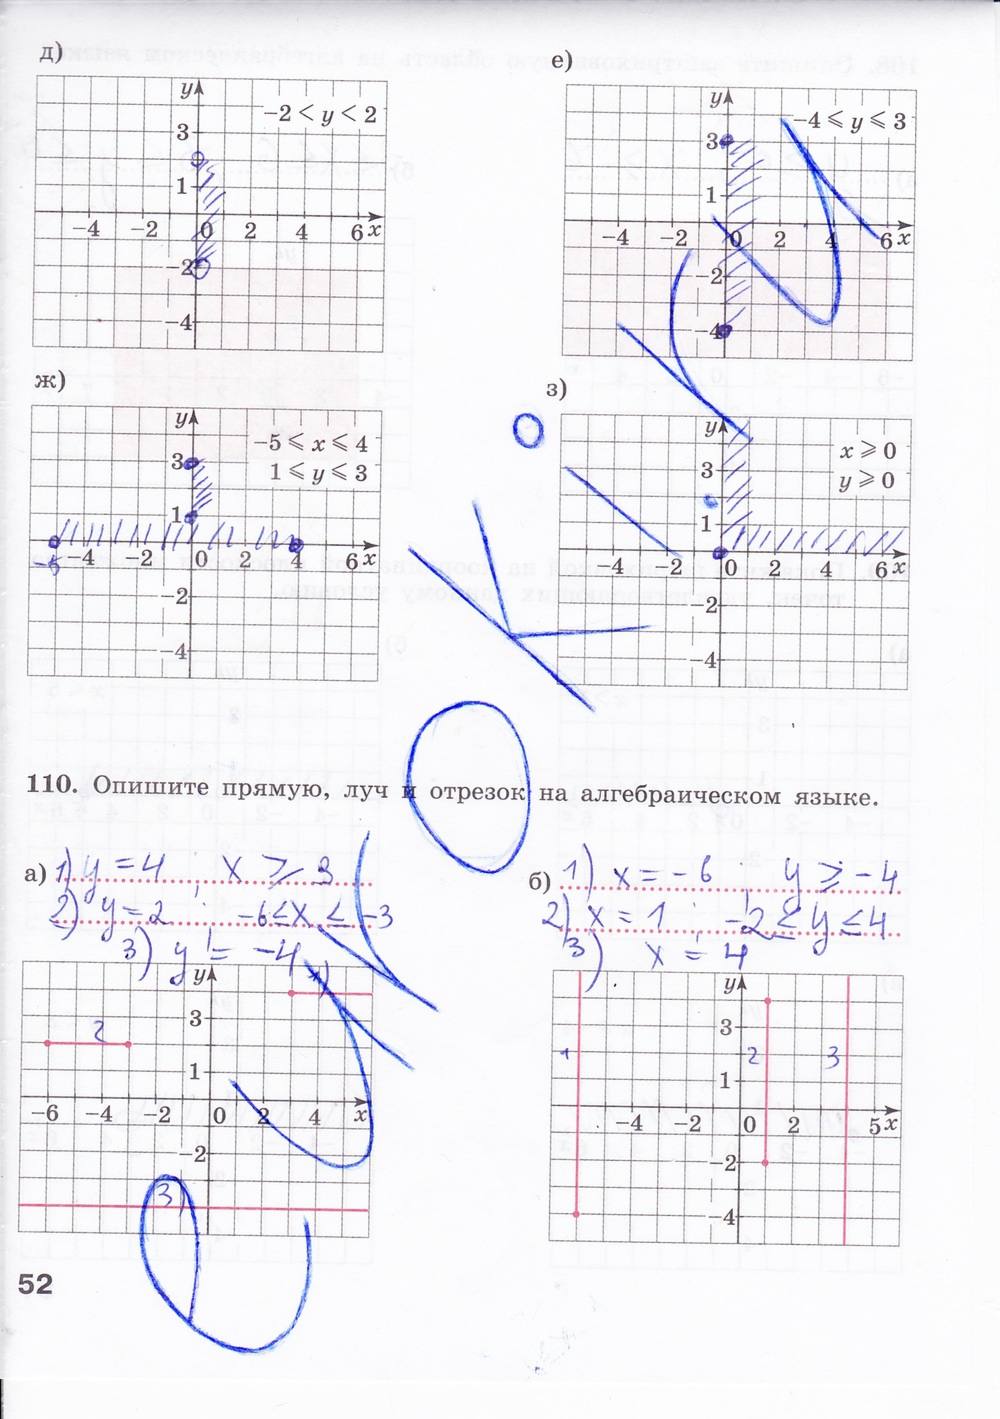 д)
y
−2 < y < 2
3
1
−4 −2 0 2 4 6 x
−2
−4
е)
y
−4 ⩽ y ⩽ 3
3
1
−4 −2 0 2 4 6 x
−2
−4
ж)
y
−5 ⩽ x ⩽ 4
1 ⩽ y ⩽ 3
3
1
−5 −4 −2 0 2 4 6 x
−2
−4
з)
y
x ⩾ 0
y ⩾ 0
3
1
−4 −2 0 2 4 6 x
−2
−4
110. Опишите прямую, луч и отрезок на алгебраическом языке.
а) 1) y = 4 ; x ≥ 3
2) y = 2 ; −6 ≤ x ≤ −3
3) y = −4
y
3
1
−6 −4 −2 0 2 4 x
−2
2
3)
б) 1) x = −6 ; y ≥ −4
2) x = 1 ; −2 ≤ y ≤ 4
3) x = 4
y
3
1
−4 −2 0 2 5 x
−2
−4
1 2 3
52